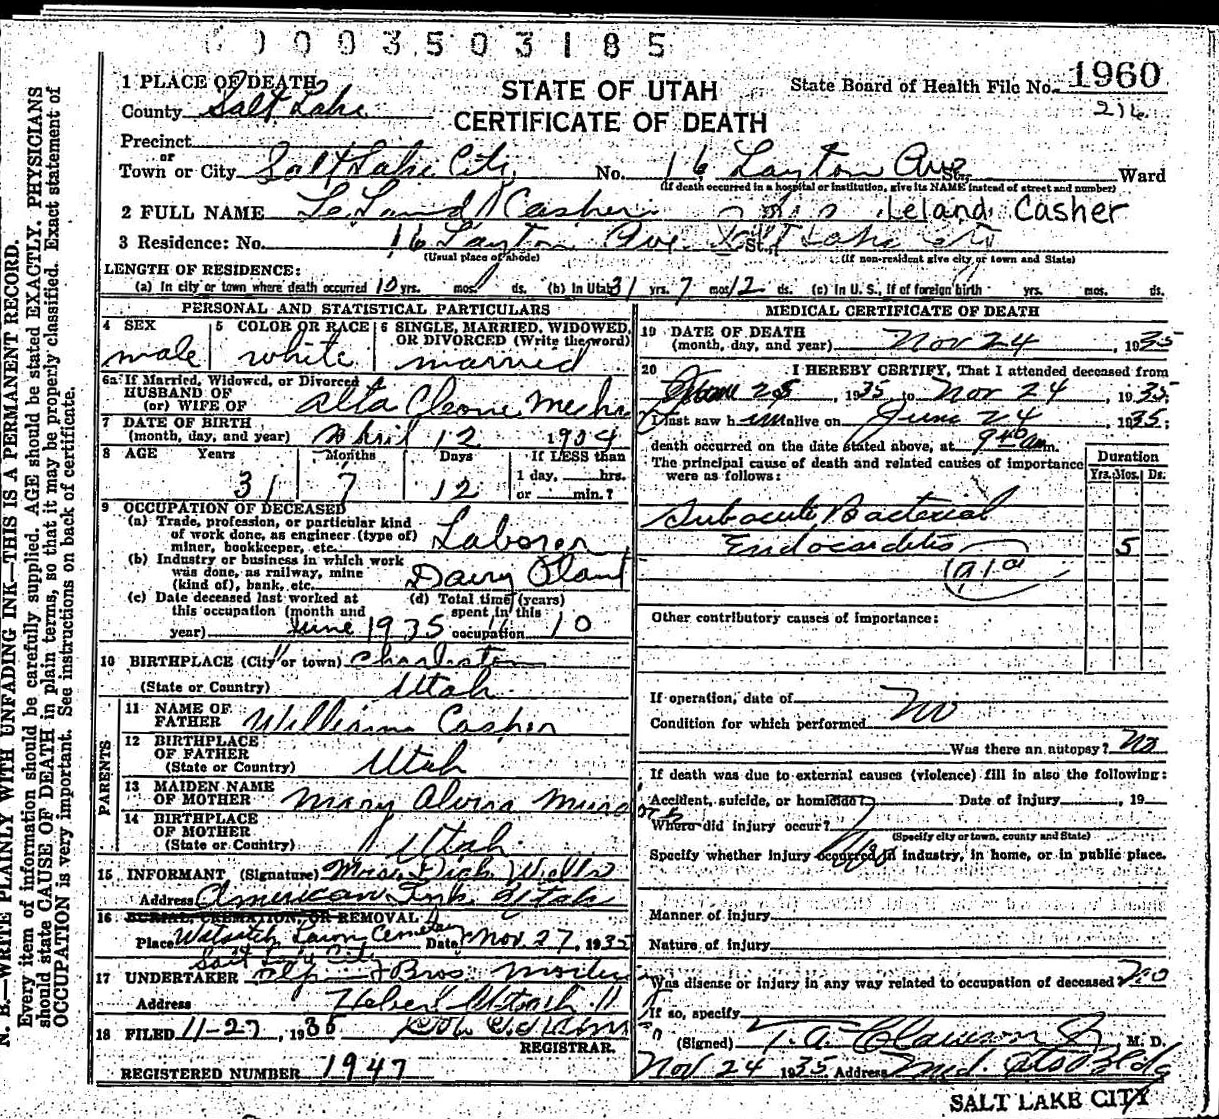 0003503185
1 PLACE OF DEATH
STATE OF UTAH
State Board of Health File No. 1960
County Salt Lake
CERTIFICATE OF DEATH
216
Precinct
or
Town or City Salt Lake City No. 16 Layton Ave St. Ward
(If death occurred in a hospital or institution, give its NAME instead of street and number)
2 FULL NAME Le Land Casher Leland Casher
3 Residence: No. 16 Layton Ave. St. Salt Lake City
(Usual place of abode) (If non-resident give city or town and State)
LENGTH OF RESIDENCE:
(a) In city or town where death occurred 10 yrs. mos. ds. (b) In Utah 31 yrs. 7 mos. 12 ds. (c) In U. S., if of foreign birth yrs. mos. ds.
PERSONAL AND STATISTICAL PARTICULARS
4 SEX male
5 COLOR OR RACE white
6 SINGLE, MARRIED, WIDOWED, OR DIVORCED (Write the word) married
6a If Married, Widowed, or Divorced
HUSBAND OF
(or) WIFE OF Alta Cleone
7 DATE OF BIRTH
(month, day, and year) April 12 1904
8 AGE Years Months Days If LESS than
31 7 12 1 day, hrs.
or min.?
9 OCCUPATION OF DECEASED
(a) Trade, profession, or particular kind
of work done, as engineer (type of)
miner, bookkeeper, etc. Laborer
(b) Industry or business in which work
was done, as railway, mine
(kind of), bank, etc. Dairy Plant
(c) Date deceased last worked at
this occupation (month and
year) June 1935
(d) Total time (years)
spent in this
occupation 10
10 BIRTHPLACE (City or town) Charleston
(State or Country) Utah
PARENTS
11 NAME OF
FATHER William Casher
12 BIRTHPLACE
OF FATHER
(State or Country) Utah
13 MAIDEN NAME
OF MOTHER Mary Alvira
14 BIRTHPLACE
OF MOTHER
(State or Country) Utah
15 INFORMANT (Signature) Mrs. Dick Wells
Address American Fork Utah
16 BURIAL, CREMATION, OR REMOVAL
Place Wasatch Lawn Cemetery Date Nov. 27, 1935
Salt Lake City
17 UNDERTAKER Bros.
Address Heber Utah
18 FILED 11-27, 1935
REGISTRAR.
REGISTERED NUMBER 1947
MEDICAL CERTIFICATE OF DEATH
19 DATE OF DEATH
(month, day, and year) Nov 24, 1935
20 I HEREBY CERTIFY, That I attended deceased from
June 25, 1935 to Nov 24, 1935
I last saw him alive on June 24, 1935;
death occurred on the date stated above, at 9 40 a.m.
The principal cause of death and related causes of importance
were as follows:
Duration
Yrs. Mos. Ds.
Subacute Bacterial
Endocarditis 5
91a
Other contributory causes of importance:
If operation, date of No
Condition for which performed
Was there an autopsy? No
If death was due to external causes (violence) fill in also the following:
Accident, suicide, or homicide? Date of injury , 19
Where did injury occur?
(Specify city or town, county and State)
Specify whether injury occurred in industry, in home, or in public place.
Manner of injury
Nature of injury
Was disease or injury in any way related to occupation of deceased? No
If so, specify
(Signed) T. A. Clawson Jr M. D.
Nov 24 1935 Address Med. Arts Bldg
SALT LAKE CITY
N. B.—WRITE PLAINLY WITH UNFADING INK—THIS IS A PERMANENT RECORD.
Every item of information should be carefully supplied. AGE should be stated EXACTLY. PHYSICIANS
should state CAUSE OF DEATH in plain terms, so that it may be properly classified. Exact statement of
OCCUPATION is very important. See instructions on back of certificate.